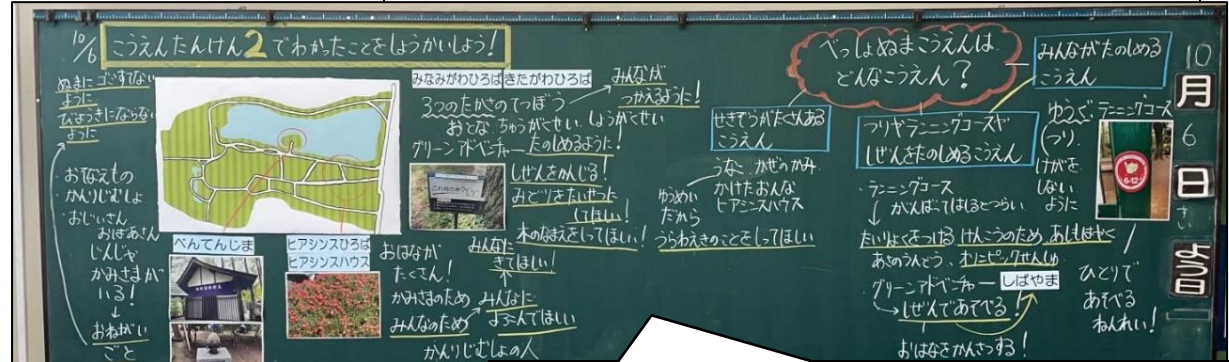 10/6
こうえんたんけん2でわかったことをしょうかいしよう！
ぬまにゴミすてない
ように
びょうきにならない
ように
おそなえもの
かんりじむしょ
おじいさん
おばあさん
じんじゃ
かみさまが
いる！
おねがい
ごと
べんてんじま
ヒアシンスひろば
ヒアシンスハウス
みなみがわひろば
きたがわひろば
3つのたかさのてつぼう
おとな、ちゅうがくせい、しょうがくせい
みんなが
つかえるように！
グリーンアドベンチャー
たのしめるように！
しぜんをかんじる！
みどりをたいせつに
してほしい！
木のなまえをしってほしい！
おはなが
たくさん！
かみさまのため
みんなのため
かんりじむしょの人
みんなに
きてほしい！
みんなに
よろこんでほしい
べっしょぬまこうえんは
どんなこうえん？
せきぞうがたくさんある
こうえん
うなこ、かぜのかみ
かけたおんな
ヒアシンスハウス
ゆうめい
だから
うらわえきのことをしってほしい
つりやランニングコースや
しぜんをたのしめるこうえん
・ランニングコース
がんばってはしるとつらい
たいりょくをつける
けんこうのため
あしもはやく
あさのうんどう、オリンピックせんしゅ
グリーンアドベンチャー
しばやま
しぜんであそべる！
おはなをかんさつする！
みんながたのしめる
こうえん
ゆうぐ
ランニングコース
つり
けがを
しない
ように
6-12
ひとりで
あそべる
ねんれい！
10
月
6
日
よう日